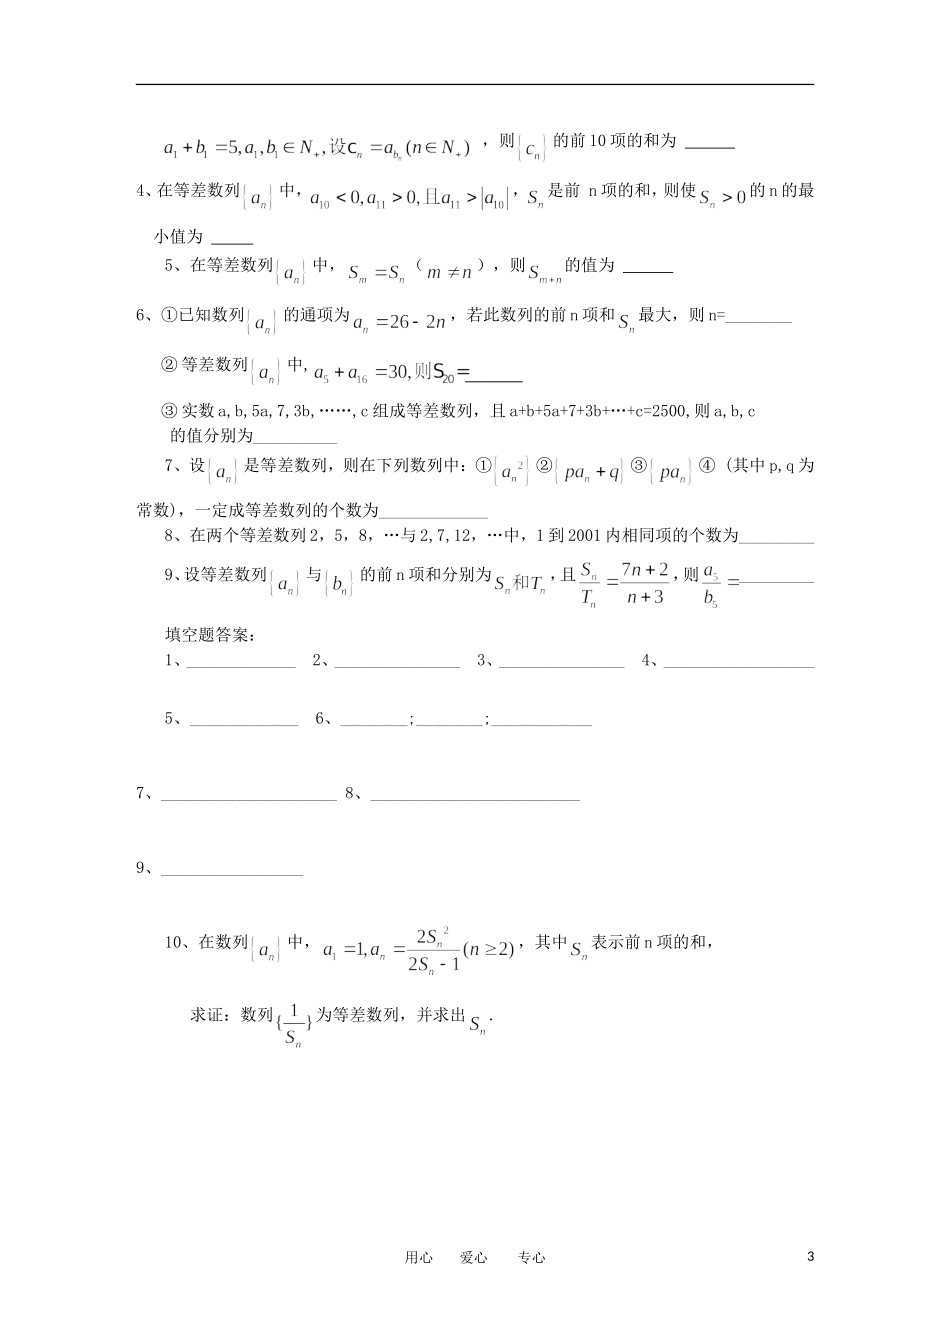 a₁+b₁=5,a₁,b₁∈N₊,设cₙ=a_{bₙ}(n∈N₊) ，则{cₙ}的前10项的和为 ______
4、在等差数列{aₙ}中,a₁₀<0,a₁₁>0,且a₁₁>|a₁₀|，Sₙ是前 n项的和,则使Sₙ>0的n的最
小值为 _____
5、在等差数列{aₙ}中，Sₘ=Sₙ（m≠n），则Sₘ₊ₙ的值为 ______
6、①已知数列{aₙ}的通项为aₙ=26-2n，若此数列的前n项和Sₙ最大，则n=________
② 等差数列{aₙ}中,a₅+a₁₆=30,则S₂₀=_______
③ 实数a,b,5a,7,3b,……,c组成等差数列，且a+b+5a+7+3b+…+c=2500,则a,b,c
的值分别为__________
7、设{aₙ}是等差数列，则在下列数列中：①{aₙ²}②{paₙ+q}③{paₙ}④ (其中p,q为
常数)，一定成等差数列的个数为_____________
8、在两个等差数列2，5，8，…与2,7,12，…中，1到2001内相同项的个数为_________
9、设等差数列{aₙ}与{bₙ}的前n项和分别为Sₙ和Tₙ,且Sₙ/Tₙ=(7n+2)/(n+3),则a₅/b₅=_________
填空题答案：
1、_____________ 2、_______________ 3、_______________ 4、__________________
5、_____________ 6、________;________;____________
7、_____________________ 8、_________________________
9、_________________
10、在数列{aₙ}中，a₁=1,aₙ=2Sₙ²/(2Sₙ-1)(n≥2)，其中Sₙ表示前n项的和，
求证：数列{1/Sₙ}为等差数列，并求出Sₙ.
用心 爱心 专心 3